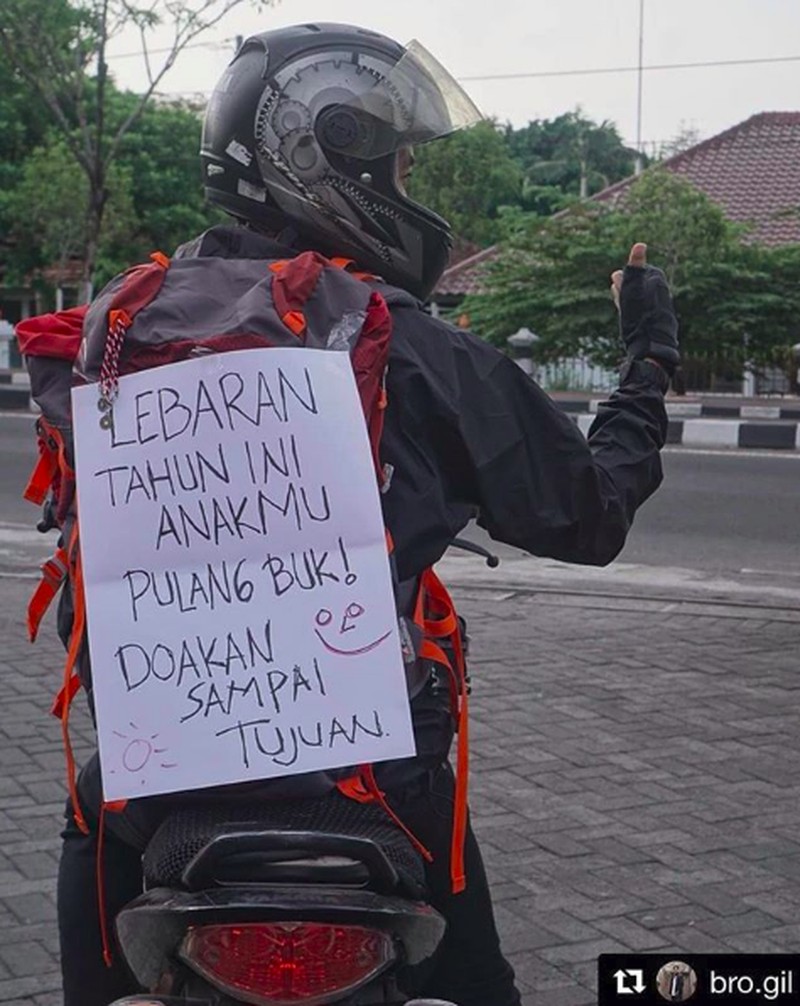 LEBARAN
TAHUN INI
ANAKMU
PULANG BUK!
DOAKAN
SAMPAI
TUJUAN.
bro.gil